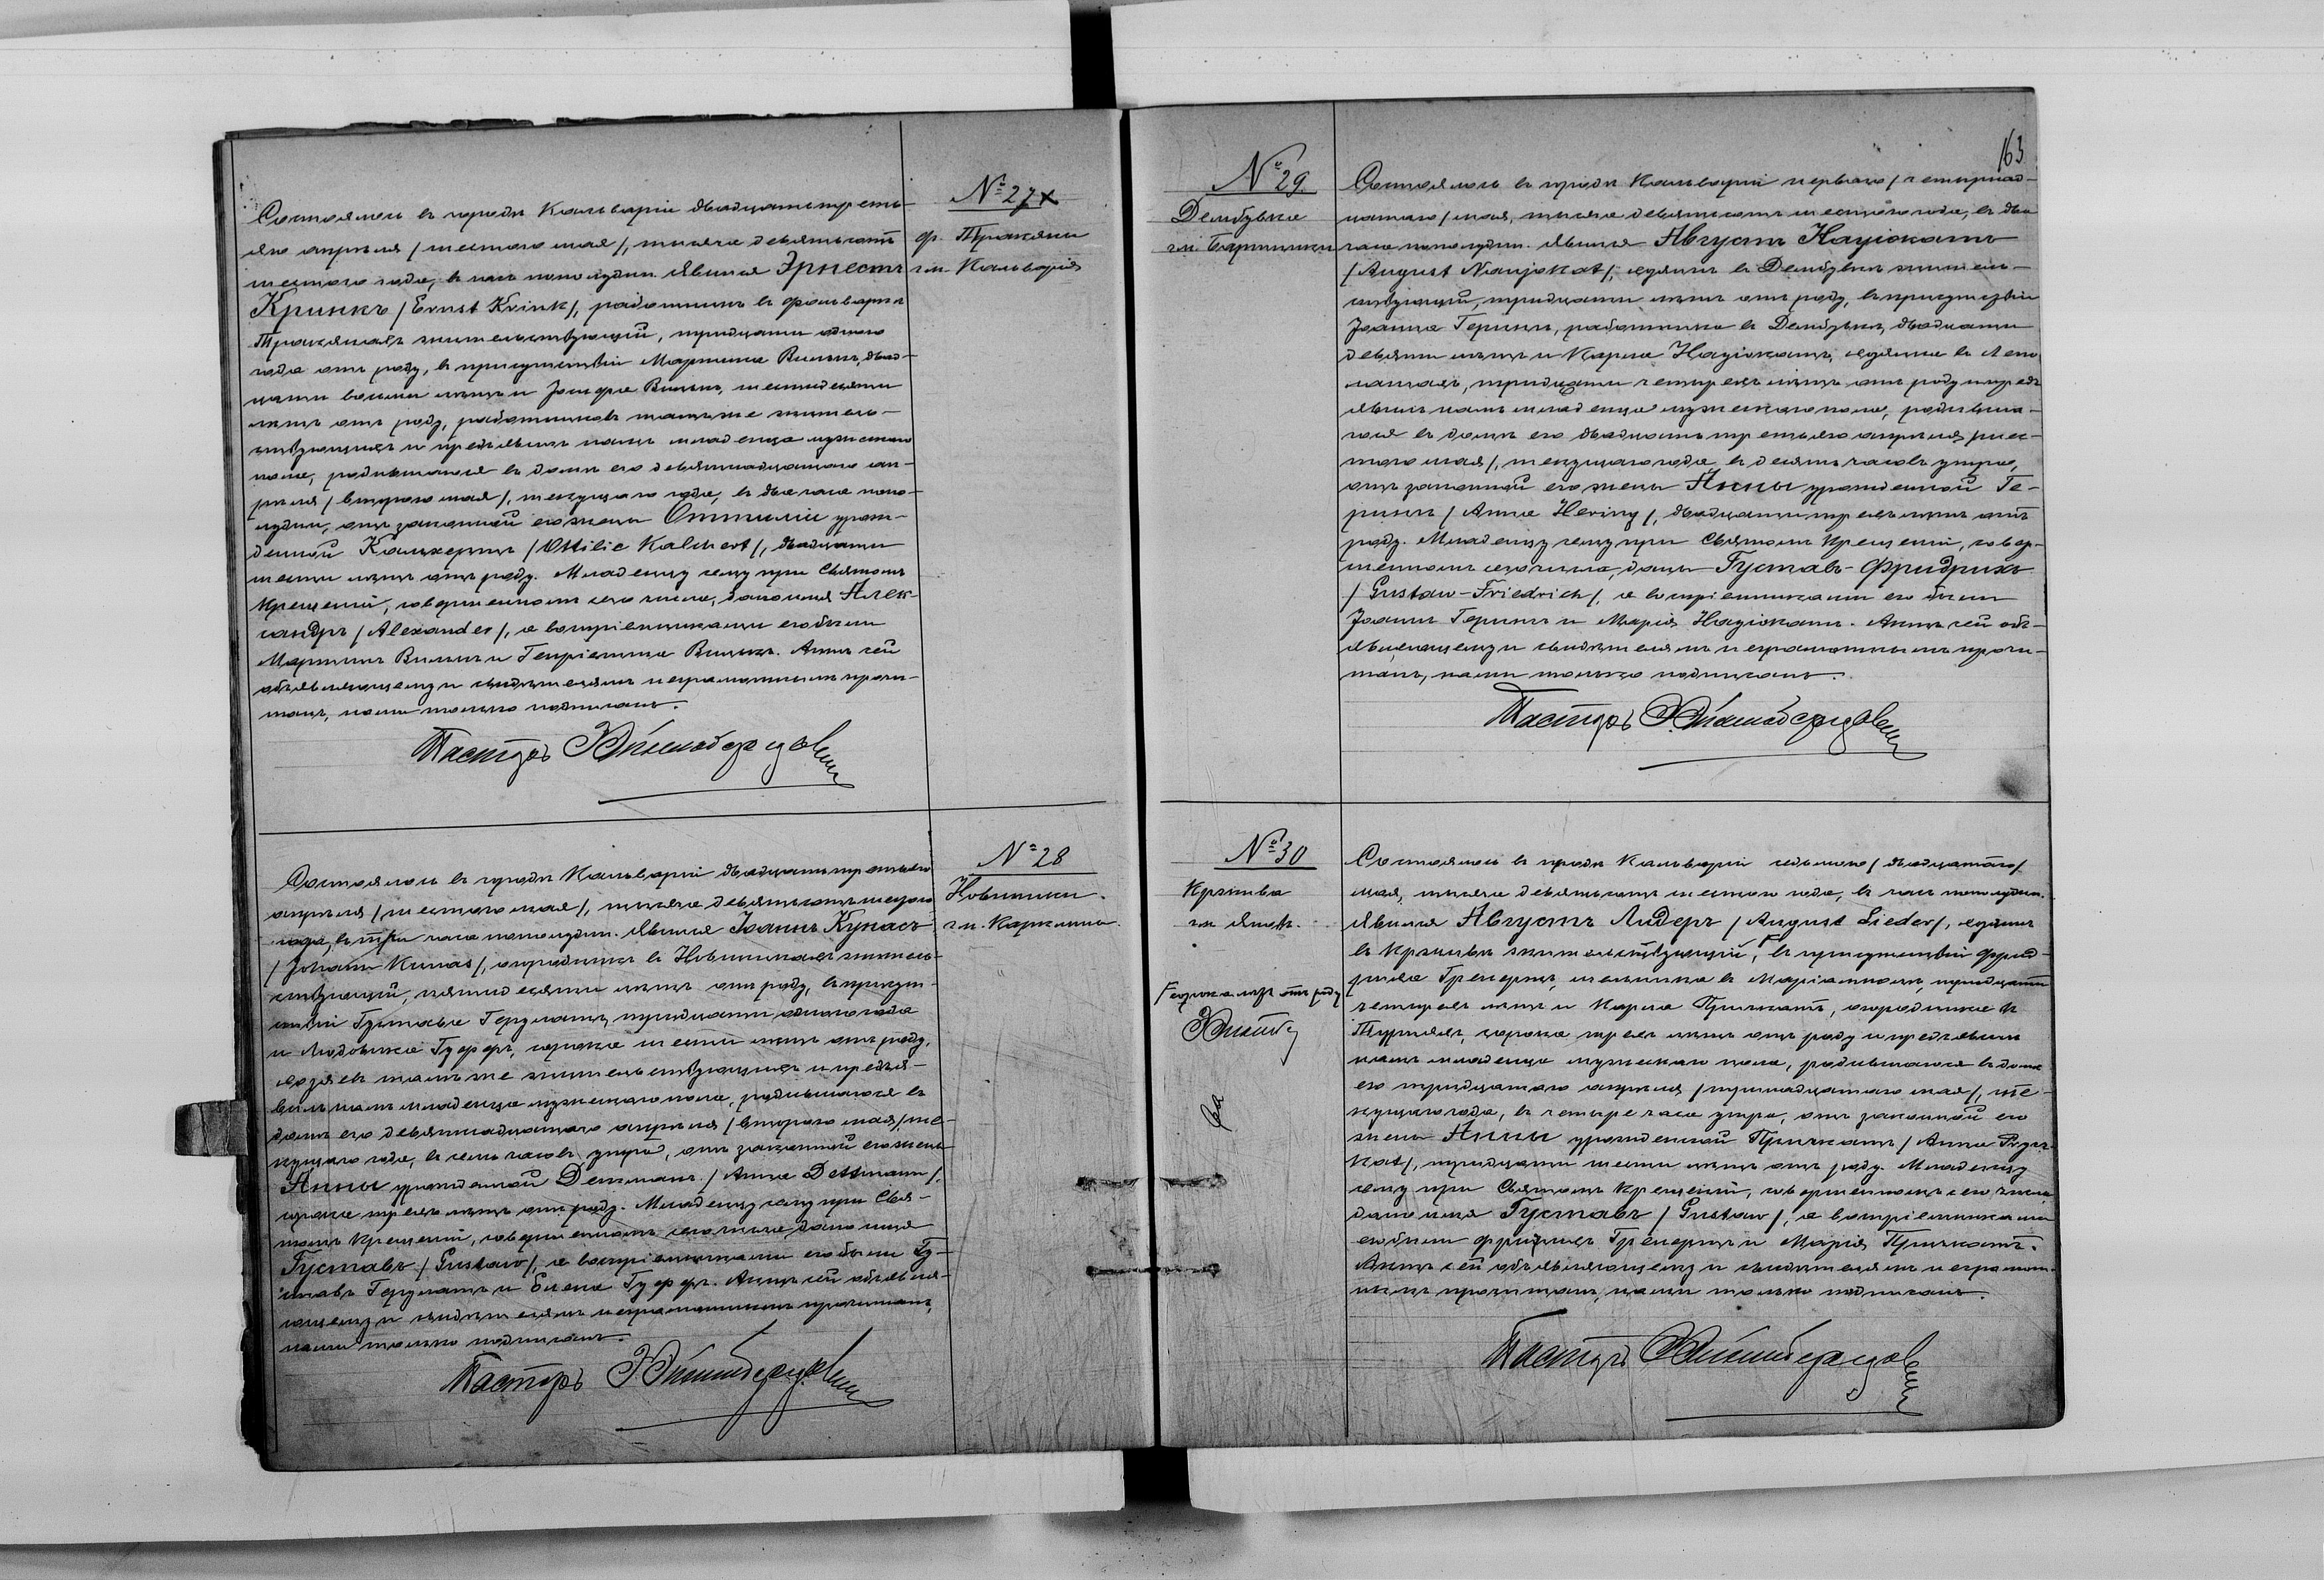 № 27
ф. Тракяни
гм. Кальварія
Состоялось въ городѣ Кальваріи двадцать треть-
яго апрѣля /шестого мая/, тысяча девятьсотъ
шестого года, въ часъ пополудни. Явился Эрнестъ
Кринкъ /Ernst Krink/, работникъ въ фольваркѣ
Тракяняхъ жительствующій, тридцати одного
года отъ роду, въ присутствіи Мартина двад-
цати восьми лѣтъ и Іосифа шестидесяти
лѣтъ отъ роду, работниковъ тамъ же житель-
ствующихъ и предъявилъ намъ младенца мужескаго
пола, родившагося въ домѣ его девятнадцатаго ап-
рѣля /второго мая/, текущаго года, въ два часа попо-
лудни, отъ законной его жены Оттиліи урож-
денной Кальхертъ /Ottilie Kalchert/, двадцати
шести лѣтъ отъ роду. Младенцу сему при Святомъ
Крещеніи, совершенномъ сего числа, дано имя Алек-
сандръ /Alexander/, а воспріемниками его были
Мартинъ и Генріетта Актъ сей
объявляющему и свидѣтелямъ неграмотнымъ прочи-
танъ, нами только подписанъ.
Пасторъ
№ 28
Новинники
гм. Каркляны
Состоялось въ городѣ Кальваріи двадцать третьяго
апрѣля /шестого мая/, тысяча девятьсотъ шестого
года, въ три часа пополудни. Явился Іоаннъ Кунасъ
/Johann Kunas/, огородникъ въ Новинникахъ житель-
ствующій, пятидесяти лѣтъ отъ роду, въ присут-
ствіи Густава Герулатъ, тридцати одного года
и Людовика сорока шести лѣтъ отъ роду,
хозяевъ тамъ же жительствующихъ и предъя-
вилъ намъ младенца мужескаго пола, родившагося въ
домѣ его девятнадцатаго апрѣля /второго мая/, те-
кущаго года, въ семь часовъ утра, отъ законной его жены
Анны урожденной Детманъ /Anna Dettmann/,
сорока трехъ лѣтъ отъ роду. Младенцу сему при Свя-
томъ Крещеніи, совершенномъ сего числа дано имя
Густавъ /Gustaw/, а воспріемниками его были Гу-
ставъ Герулатъ и Елена Актъ сей объявля-
ющему и свидѣтелямъ неграмотнымъ прочитанъ,
нами только подписанъ.
Пасторъ
163
№ 29.
Дембувка
гм. Бартники
Состоялось въ городѣ Кальваріи перваго /четырнад-
цатаго/ мая, тысяча девятьсотъ шестого года, въ два
часа пополудни. Явился Августъ Науіокатъ
/August Naujokat/, хозяинъ въ Дембувкѣ житель-
ствующій, тридцати лѣтъ отъ роду, въ присутствіи
Іоанна Герингъ, работника въ Дембувкѣ, двадцати
девяти лѣтъ и Карла Науіокатъ, хозяина въ
тридцати четырехъ лѣтъ отъ роду и предъ-
явилъ намъ младенца мужескаго пола, родивша-
гося въ домѣ его двадцать третьяго апрѣля /шес-
того мая/, текущаго года, въ десять часовъ утра,
отъ законной его жены Анны урожденной Ге-
рингъ /Anna Hering/, двадцати трехъ лѣтъ отъ
роду. Младенцу сему при Святомъ Крещеніи, совер-
шенномъ сего числа, даны Густавъ-Фридрихъ
/Gustaw-Friedrich/, а воспріемниками его были
Іоаннъ Герингъ и Марія Науіокатъ. Актъ сей объ-
являющему и свидѣтелямъ неграмотнымъ прочи-
танъ, нами только подписанъ.
Пасторъ
№ 30
Кржива
гм.
сорока лѣтъ отъ роду
Состоялось въ городѣ Кальваріи седьмого /двадцатаго/
мая, тысяча девятьсотъ шестого года, въ часъ пополудни.
Явился Августъ Лидеръ /August Lieder/, хозяинъ
въ Крживѣ жительствующій, въ присутствіи Фрид-
риха мельника въ тридцати
четырехъ лѣтъ и Карла огородника въ
сорока трехъ лѣтъ отъ роду и предъявилъ
намъ младенца мужескаго пола, родившагося въ домѣ
его тридцатаго апрѣля /тринадцатаго мая/, те-
кущаго года, въ четыре часа утра, отъ законной его
жены Анны урожденной /Anna
kat/, тридцати шести лѣтъ отъ роду. Младенцу
сему при Святомъ Крещеніи, совершенномъ сего числа
дано имя Густавъ /Gustaw/, а воспріемниками
его были Фридрихъ и Марія
Актъ сей объявляющему и свидѣтелямъ неграмот-
нымъ прочитанъ, нами только подписанъ.
Пасторъ